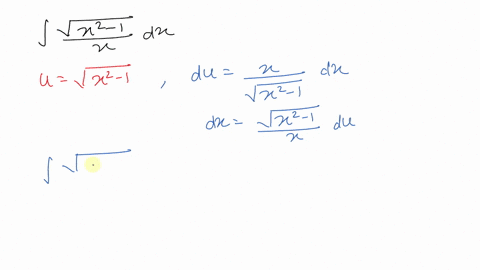 ∫ √(x²−1)/x dx
u = √(x²−1) , du = x/√(x²−1) dx
dx = √(x²−1)/x du
∫ √